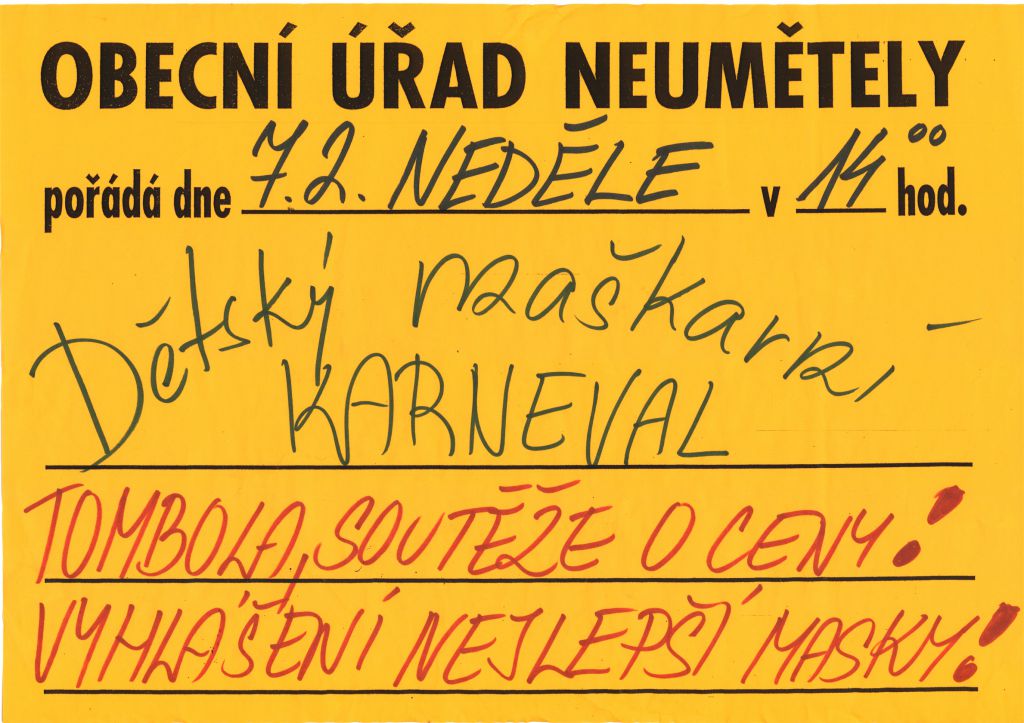 OBECNÍ ÚŘAD NEUMĚTELY
pořádá dne 7.2. NEDĚLE v 14⁰⁰ hod.
Dětský maškarní
KARNEVAL
TOMBOLA, SOUTĚŽE O CENY!
VYHLÁŠENÍ NEJLEPŠÍ MASKY!